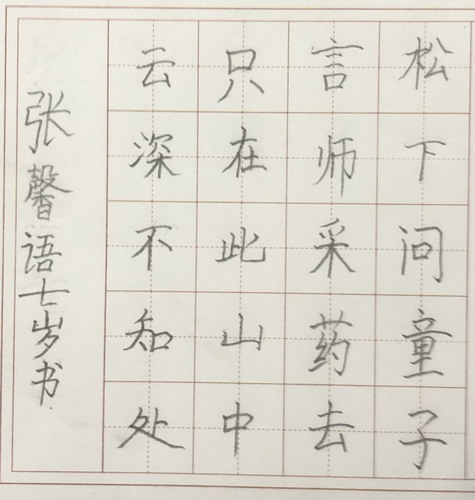 松下问童子
言师采药去
只在此山中
云深不知处
张馨语七岁书